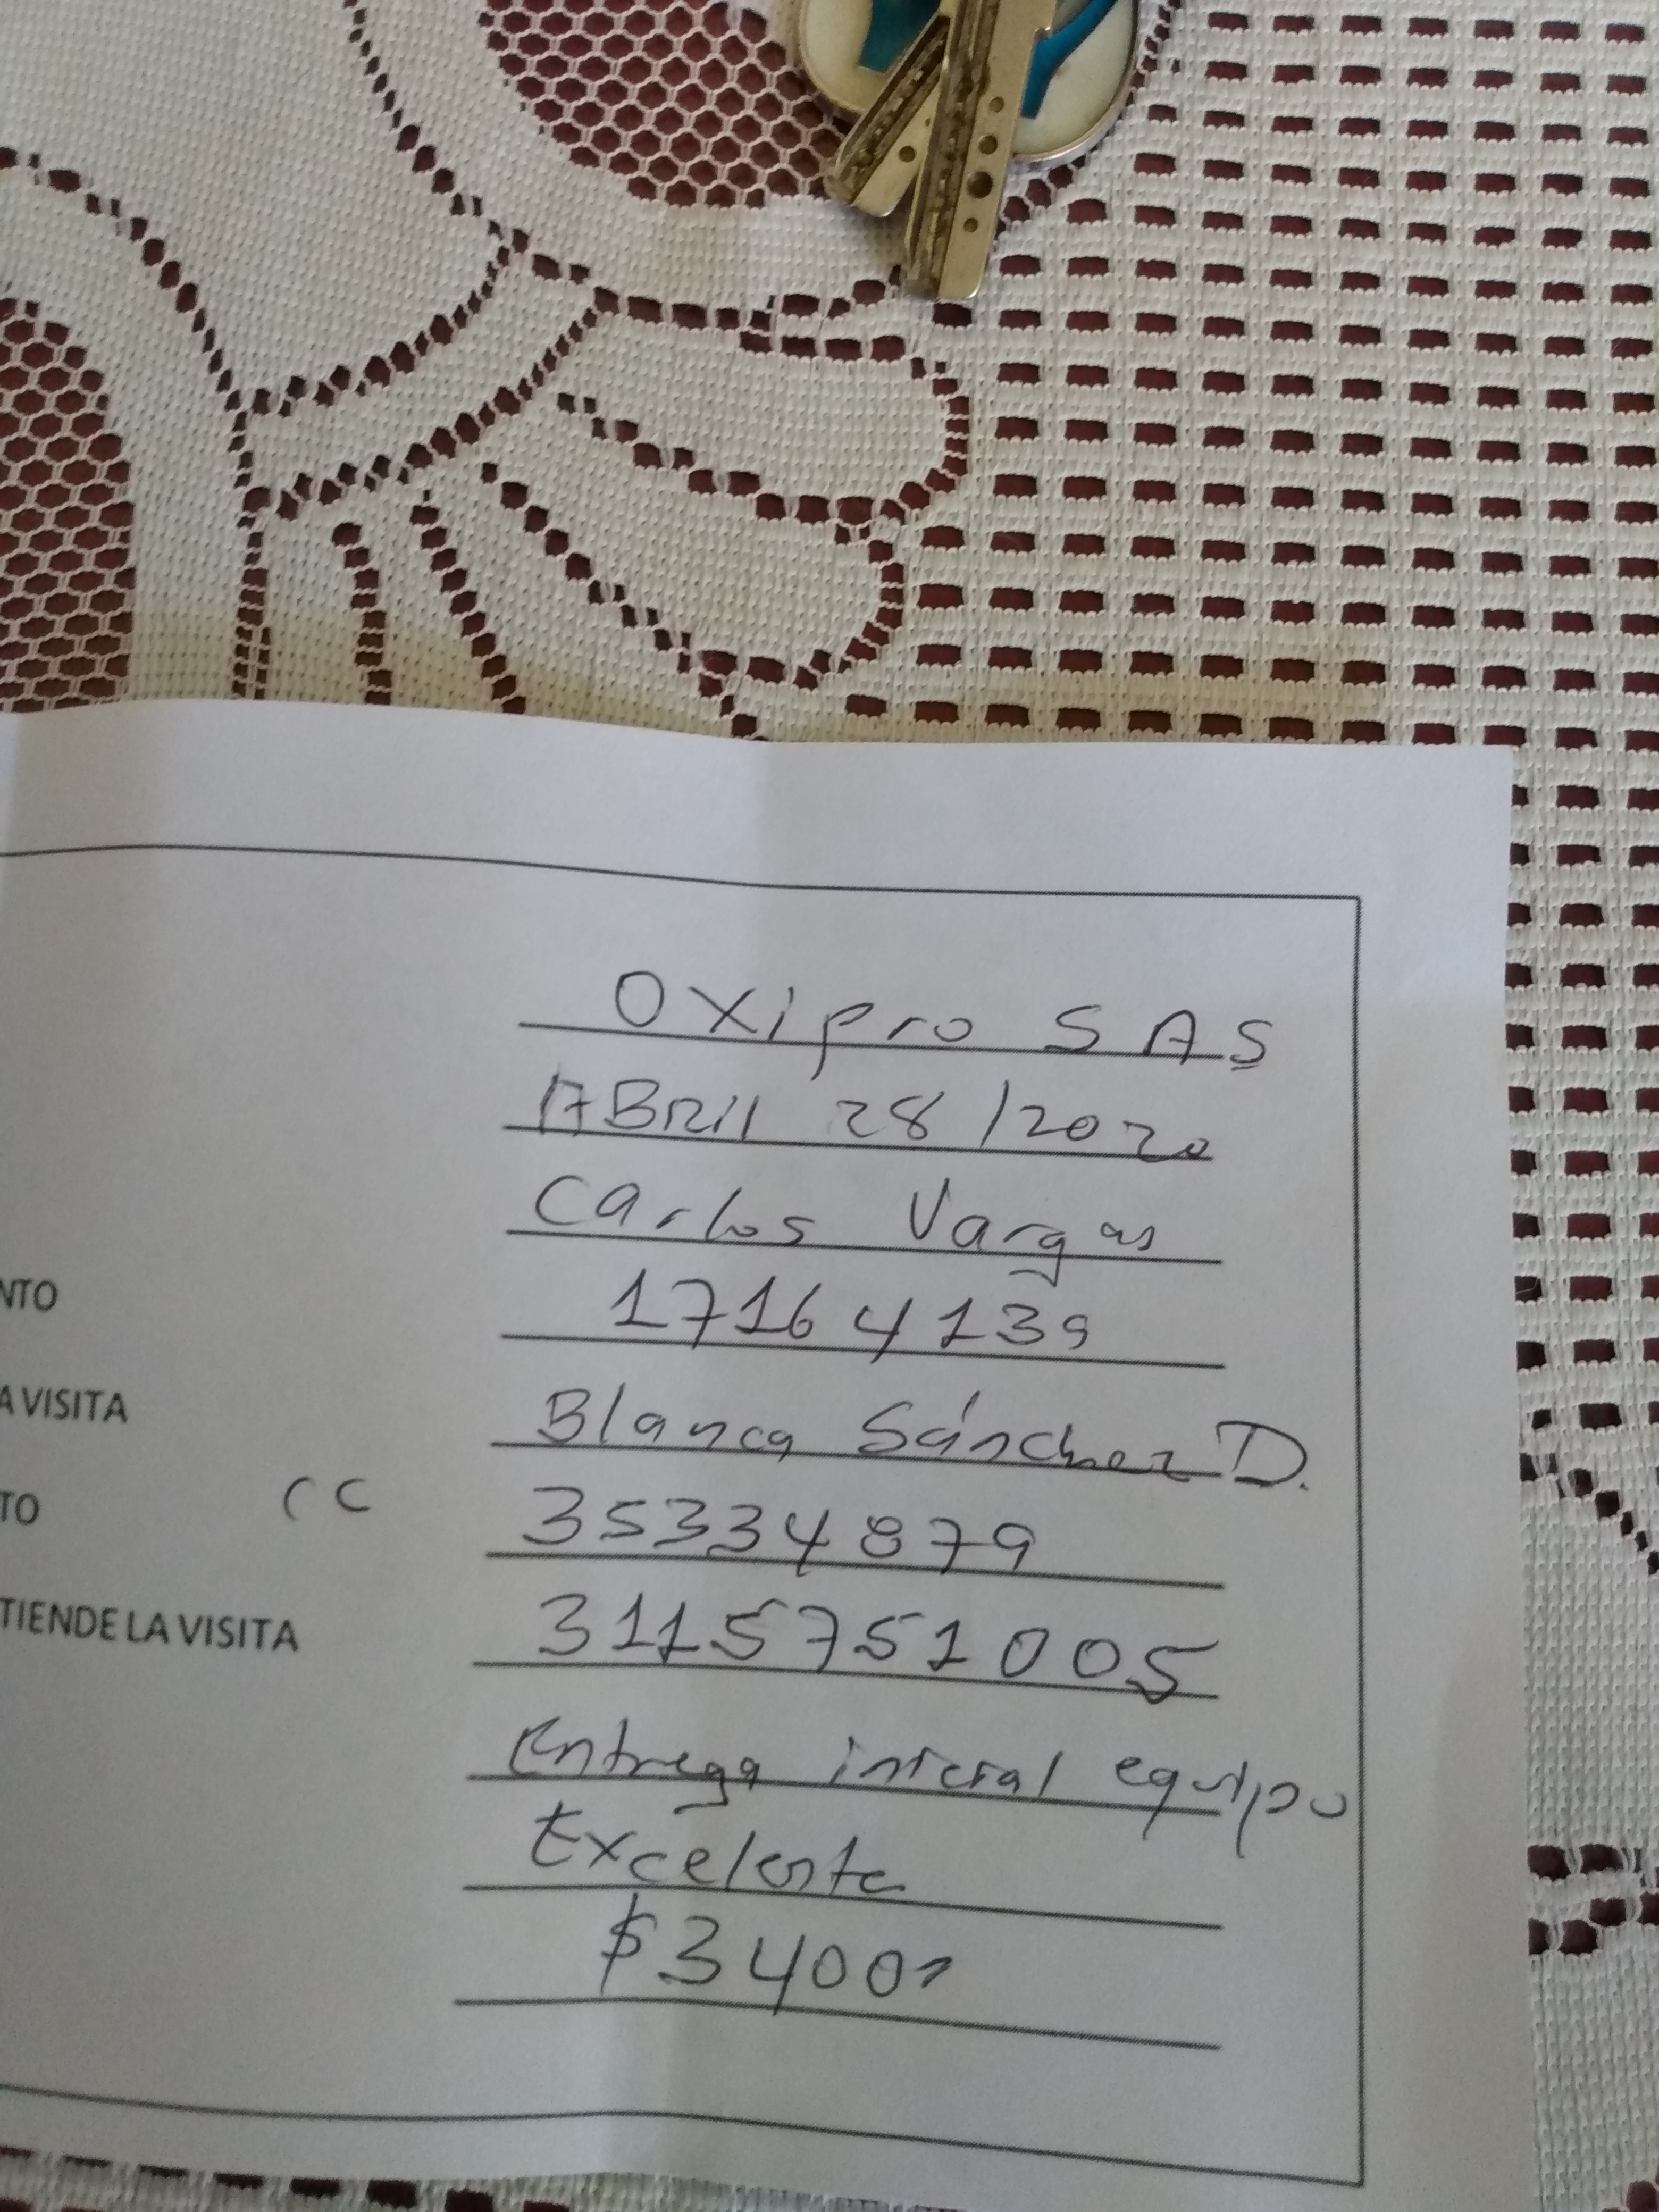 Oxipro SAS
ABRIL 28/2020
Carlos Vargas
NTO 17164139
A VISITA Blanca Sánchez D.
TO CC 35334879
TIENDE LA VISITA 3115751005
Entrega inicial equipo
Excelente
$3400